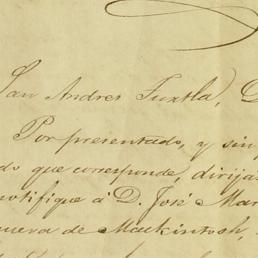 San Andres Tuxtla, D
Por presentado, y sin
do que corresponde, dirija
notifique á D. José Mar
guera de Mackintosh,